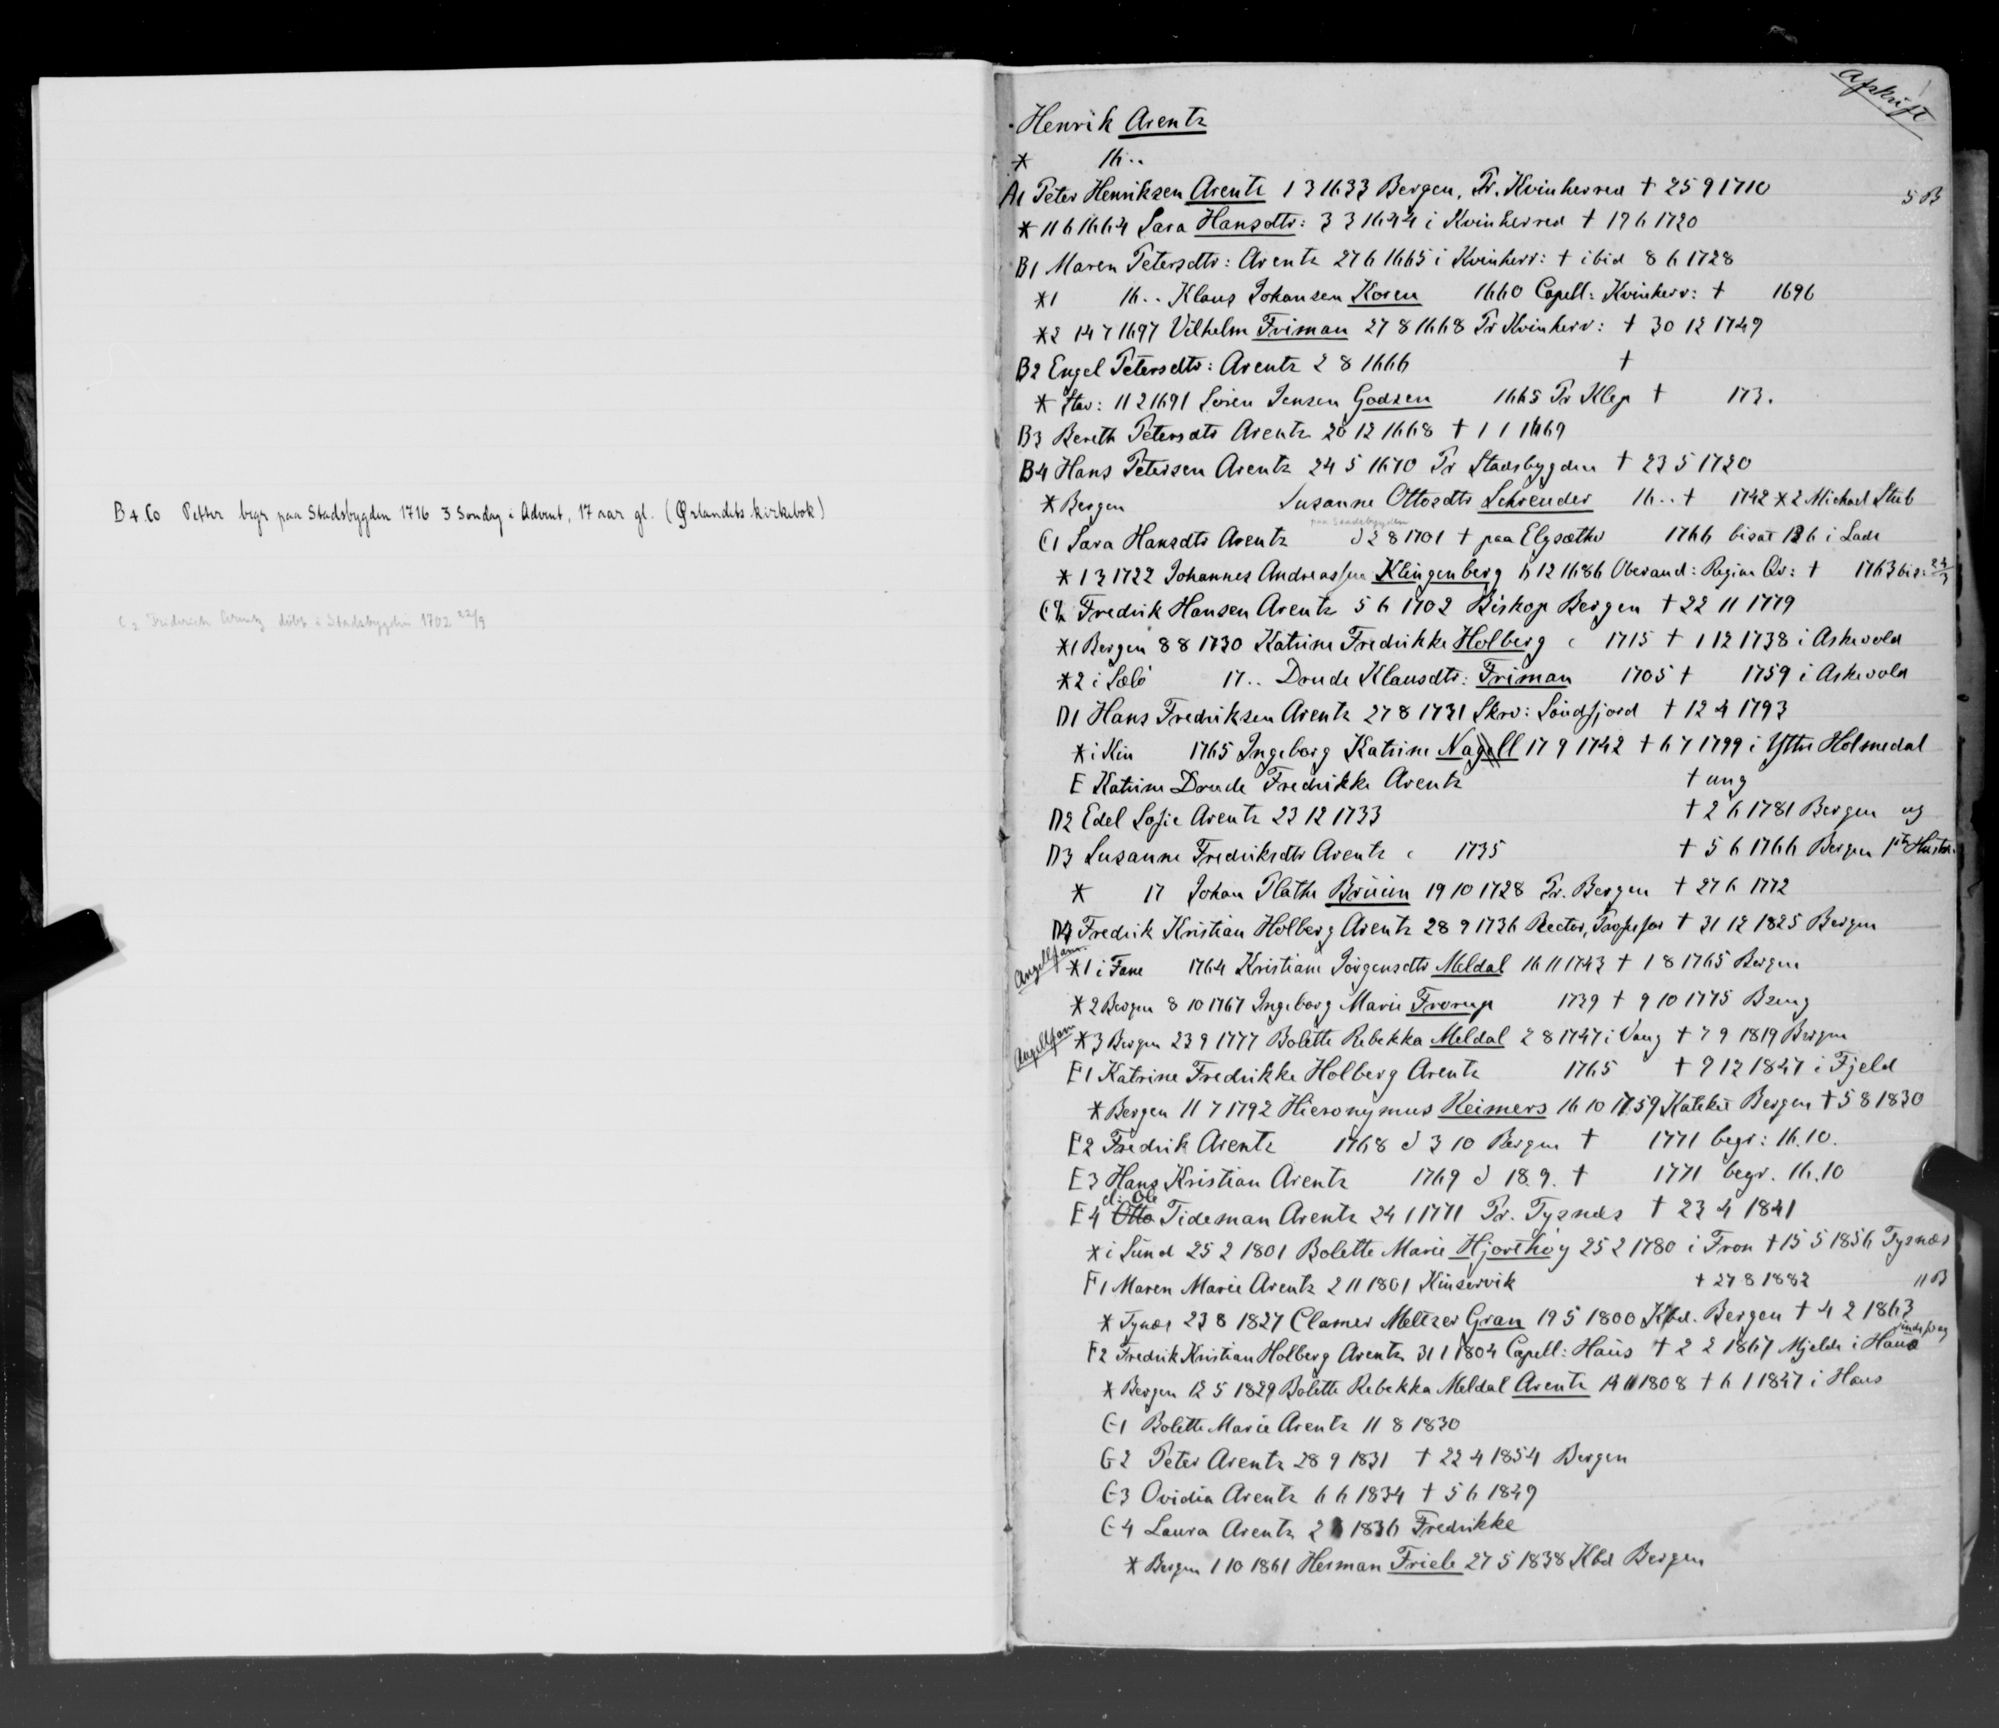 B4 C0 Petter begr paa Stadsbygden 1716 3 Søndag i Advent, 17 aar gl. (Ørlandets kirkebok)
C2 Friderich Arentz døbt i Stadsbygden 1702 22/9
Afskrift
Henrik Arentz
* 16..
A1 Peter Henriksen Arentz 1 3 1633 Bergen, Pr. Kvinherred † 25 9 1710 5 B
* 11 6 1664 Sara Hansdtr: 3 3 1644 i Kvinherred † 19 6 1720
B1 Maren Petersdtr: Arentz 27 6 1665 i Kvinherr: † ibid 8 6 1728
*1 16.. Klaus Johansen Koren 1660 Capell: Kvinherr: † 1696
*2 14 7 1697 Vilhelm Friman 27 8 1668 Pr Kvinherr: † 30 12 1749
B2 Engel Petersdtr: Arentz 2 8 1666 †
* Stav: 11 2 1691 Søren Jensen Godzen 1665 Pr Klep † 173.
B3 Bereth Petersdtr Arentz 20 12 1668 † 1 1 1669
B4 Hans Petersen Arentz 24 5 1670 Pr Stadsbygden † 23 5 1720
* Bergen Susanne Ottosdtr Schreuder 16.. † 1742 *2 Michael Stub
paa Stadsbygden
C1 Sara Hansdtr Arentz d 2 8 1701 † paa Elgsæther 1766 bisat 12 6 i Lade
* 1 3 1722 Johannes Andreassen Klingenberg 6 12 1686 Oberaud: Regim Qv: † 1763 bis: 24/3
C2 Fredrik Hansen Arentz 5 6 1702 Biskop Bergen † 22 11 1779
*1 Bergen 8 8 1730 Katrine Fredrikke Holberg c 1715 † 1 12 1738 i Askevold
*2 i Solø 17.. Drude Klausdtr: Friman 1705 † 1759 i Askevold
D1 Hans Fredriksen Arentz 27 8 1731 Skrv: Søndfjord † 12 4 1793
* i Kin 1765 Ingeborg Katrine Nagell 17 9 1742 † 6 7 1799 i Yttre Holmedal
E Katrine Drude Fredrikke Arentz † ung
D2 Edel Sofie Arentz 23 12 1733 † 2 6 1781 Bergen ug
D3 Susanne Fredriksdtr Arentz c 1735 † 5 6 1766 Bergen 1ste Hustru
* 17 Johan Plathe Brüun 19 10 1728 Pr. Bergen † 27 6 1772
D4 Fredrik Kristian Holberg Arentz 28 9 1736 Rector, Professor † 31 12 1825 Bergen
Angellfam. *1 i Fane 1764 Kristiane Jørgensdtr Meldal 16 11 1743 † 1 8 1765 Bergen
*2 Bergen 8 10 1767 Ingeborg Marie Frorup 1739 † 9 10 1775 Bzeng
Angellfam *3 Bergen 23 9 1777 Bolette Rebekka Meldal 2 8 1747 i Vang † 7 9 1819 Bergen
E1 Katrine Fredrikke Holberg Arentz 1765 † 9 12 1847 i Fjeld
* Bergen 11 7 1792 Hieronymus Reimers 16 10 1759 Kateket Bergen † 5 8 1830
E2 Fredrik Arentz 1768 d 3 10 Bergen † 1771 begr: 16.10.
E3 Hans Kristian Arentz 1769 d 18.9. † 1771 begr. 16.10
el: Ole
E4 Otto Tideman Arentz 24 1 1771 Pr. Tysnæs † 23 4 1841
* i Sund 25 2 1801 Bolette Marie Hjorthøy 25 2 1780 i Fron † 15 5 1856 Tysnæs
F1 Maren Marie Arentz 2 11 1801 Kinservik † 27 8 1882 11 B
* Tysnæs 23 8 1827 Clamer Meltzer Gran 19 5 1800 Kbd. Bergen † 4 2 1863
F2 Fredrik Kristian Holberg Arentz 31 1 1804 Capell: Haus † 2 2 1867 Mjelde i Haus
* Bergen 12 5 1829 Bolette Rebekka Meldal Arentz 14 11 1808 † 6 1 1847 i Haus
G1 Bolette Marie Arentz 11 8 1830
G2 Peter Arentz 28 9 1831 † 22 4 1854 Bergen
G3 Ovidia Arentz 6 6 1834 † 5 6 1849
G4 Laura Arentz 2 1836 Fredrikke
* Bergen 1 10 1861 Herman Friele 27 5 1838 Kbd Bergen